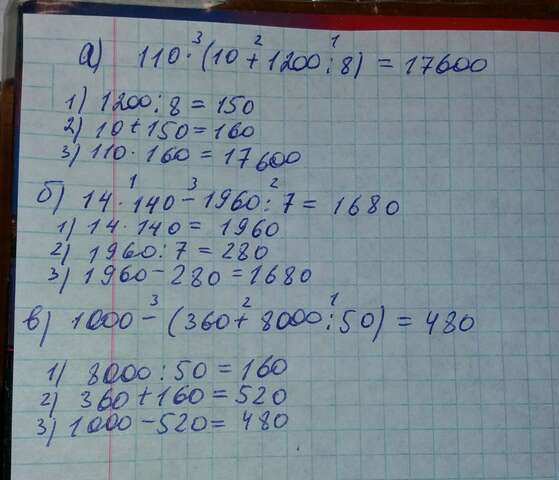 а) 110 · (10 + 1200 : 8) = 17600
1) 1200 : 8 = 150
2) 10 + 150 = 160
3) 110 · 160 = 17600
б) 14 · 140 - 1960 : 7 = 1680
1) 14 · 140 = 1960
2) 1960 : 7 = 280
3) 1960 - 280 = 1680
в) 1000 - (360 + 8000 : 50) = 480
1) 8000 : 50 = 160
2) 360 + 160 = 520
3) 1000 - 520 = 480